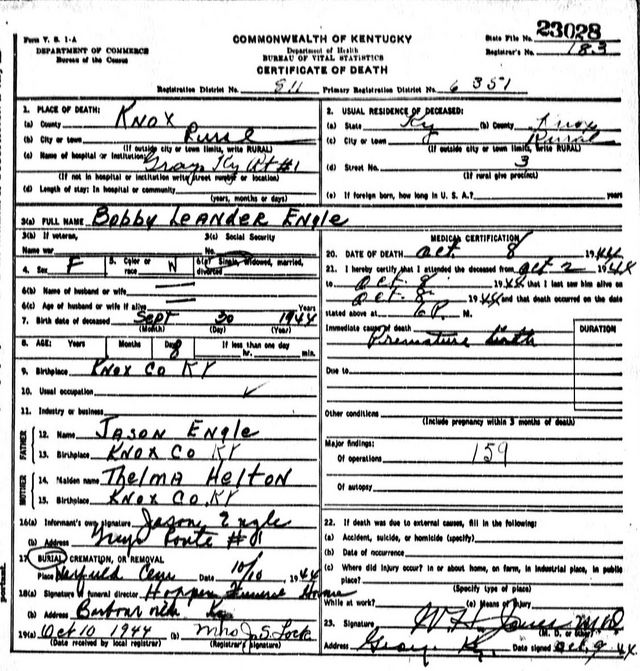 Form V. S. 1-A
DEPARTMENT OF COMMERCE
Bureau of the Census
COMMONWEALTH OF KENTUCKY
Department of Health
BUREAU OF VITAL STATISTICS
CERTIFICATE OF DEATH
State File No. 23028
Registrar's No. 183
Registration District No. 511 Primary Registration District No. 6351
1. PLACE OF DEATH:
(a) County Knox
(b) City or town Rural
(If outside city or town limits, write RURAL)
(c) Name of hospital or institution: Gray, Ky Rt #1
(If not in hospital or institution write street number or location)
(d) Length of stay: In hospital or community
(years, months or days)
2. USUAL RESIDENCE OF DECEASED:
(a) State Ky (b) County Knox
(c) City or town Rural
(If outside city or town limits, write RURAL)
(d) Street No. 3
(If rural give precinct)
(e) If foreign born, how long in U. S. A.? years
3(a) FULL NAME Bobby Leander Engle
3(b) If veteran, Name war 3(c) Social Security No.
4. Sex F 5. Color or race W 6(a) Single, widowed, married, divorced
6(b) Name of husband or wife
6(c) Age of husband or wife if alive Years
7. Birth date of deceased Sept 30 1944
(Month) (Day) (Year)
8. AGE: Years Months Days 8 If less than one day hr. min.
9. Birthplace Knox Co Ky
10. Usual occupation
11. Industry or business
FATHER
12. Name Jason Engle
13. Birthplace Knox Co Ky
MOTHER
14. Maiden name Thelma Helton
15. Birthplace Knox Co, Ky
16(a) Informant's own signature Jason Engle
(b) Address Grays Route #1
17. BURIAL, CREMATION, OR REMOVAL
Place Date 10/10 1944
18(a) Signature of funeral director Hopper Funeral Home
(b) Address Barbourville Ky
19(a) Oct 10 1944 (b) Mrs J. S. Lock
(Date received by local registrar) (Registrar's signature)
MEDICAL CERTIFICATION
20. DATE OF DEATH Oct. 8 1944
21. I hereby certify that I attended the deceased from Oct 2 1944
to Oct. 8 1944 that I last saw him alive on
Oct. 8. 1944 and that death occurred on the date
stated above at 6 P. M.
Immediate cause of death DURATION
Premature birth
Due to
Other conditions
(Include pregnancy within 3 months of death)
Major findings:
Of operations 159
Of autopsy
22. If death was due to external causes, fill in the following:
(a) Accident, suicide, or homicide (specify)
(b) Date of occurrence
(c) Where did injury occur? In or about home, on farm, in industrial place, in public place?
(Specify type of place)
While at work? (e) Means of Injury
23. Signature W H Jones M.D.
(M. D. or other)
Address Ky. Date signed Oct, 9 44
portant.